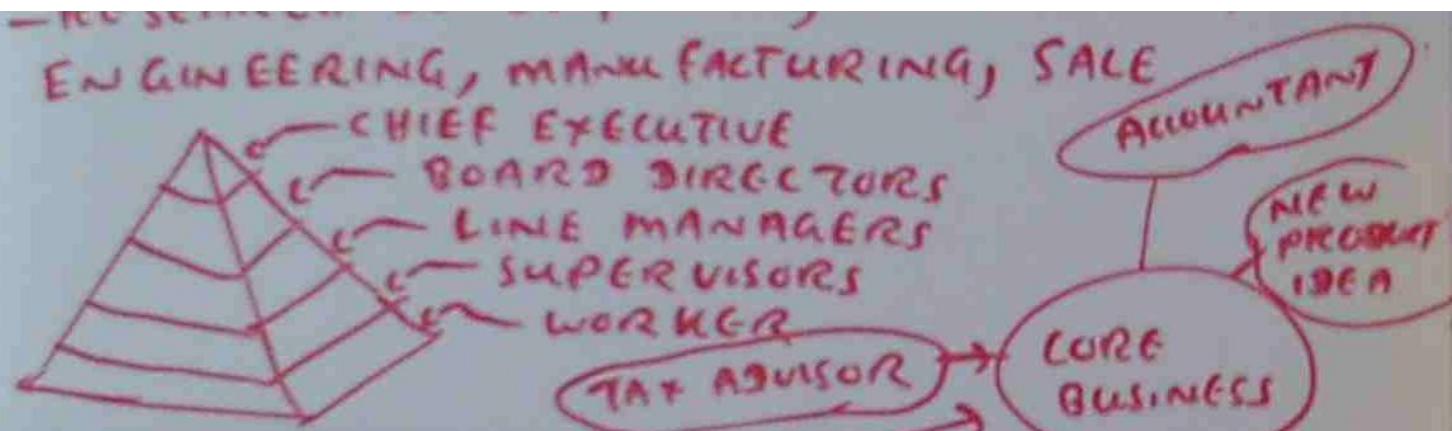 ENGINEERING, MANUFACTURING, SALE
CHIEF EXECUTIVE
BOARD DIRECTORS
LINE MANAGERS
SUPERVISORS
WORKER
ACCOUNTANT
NEW
PRODUCT
IDEA
TAX ADVISOR
CORE
BUSINESS